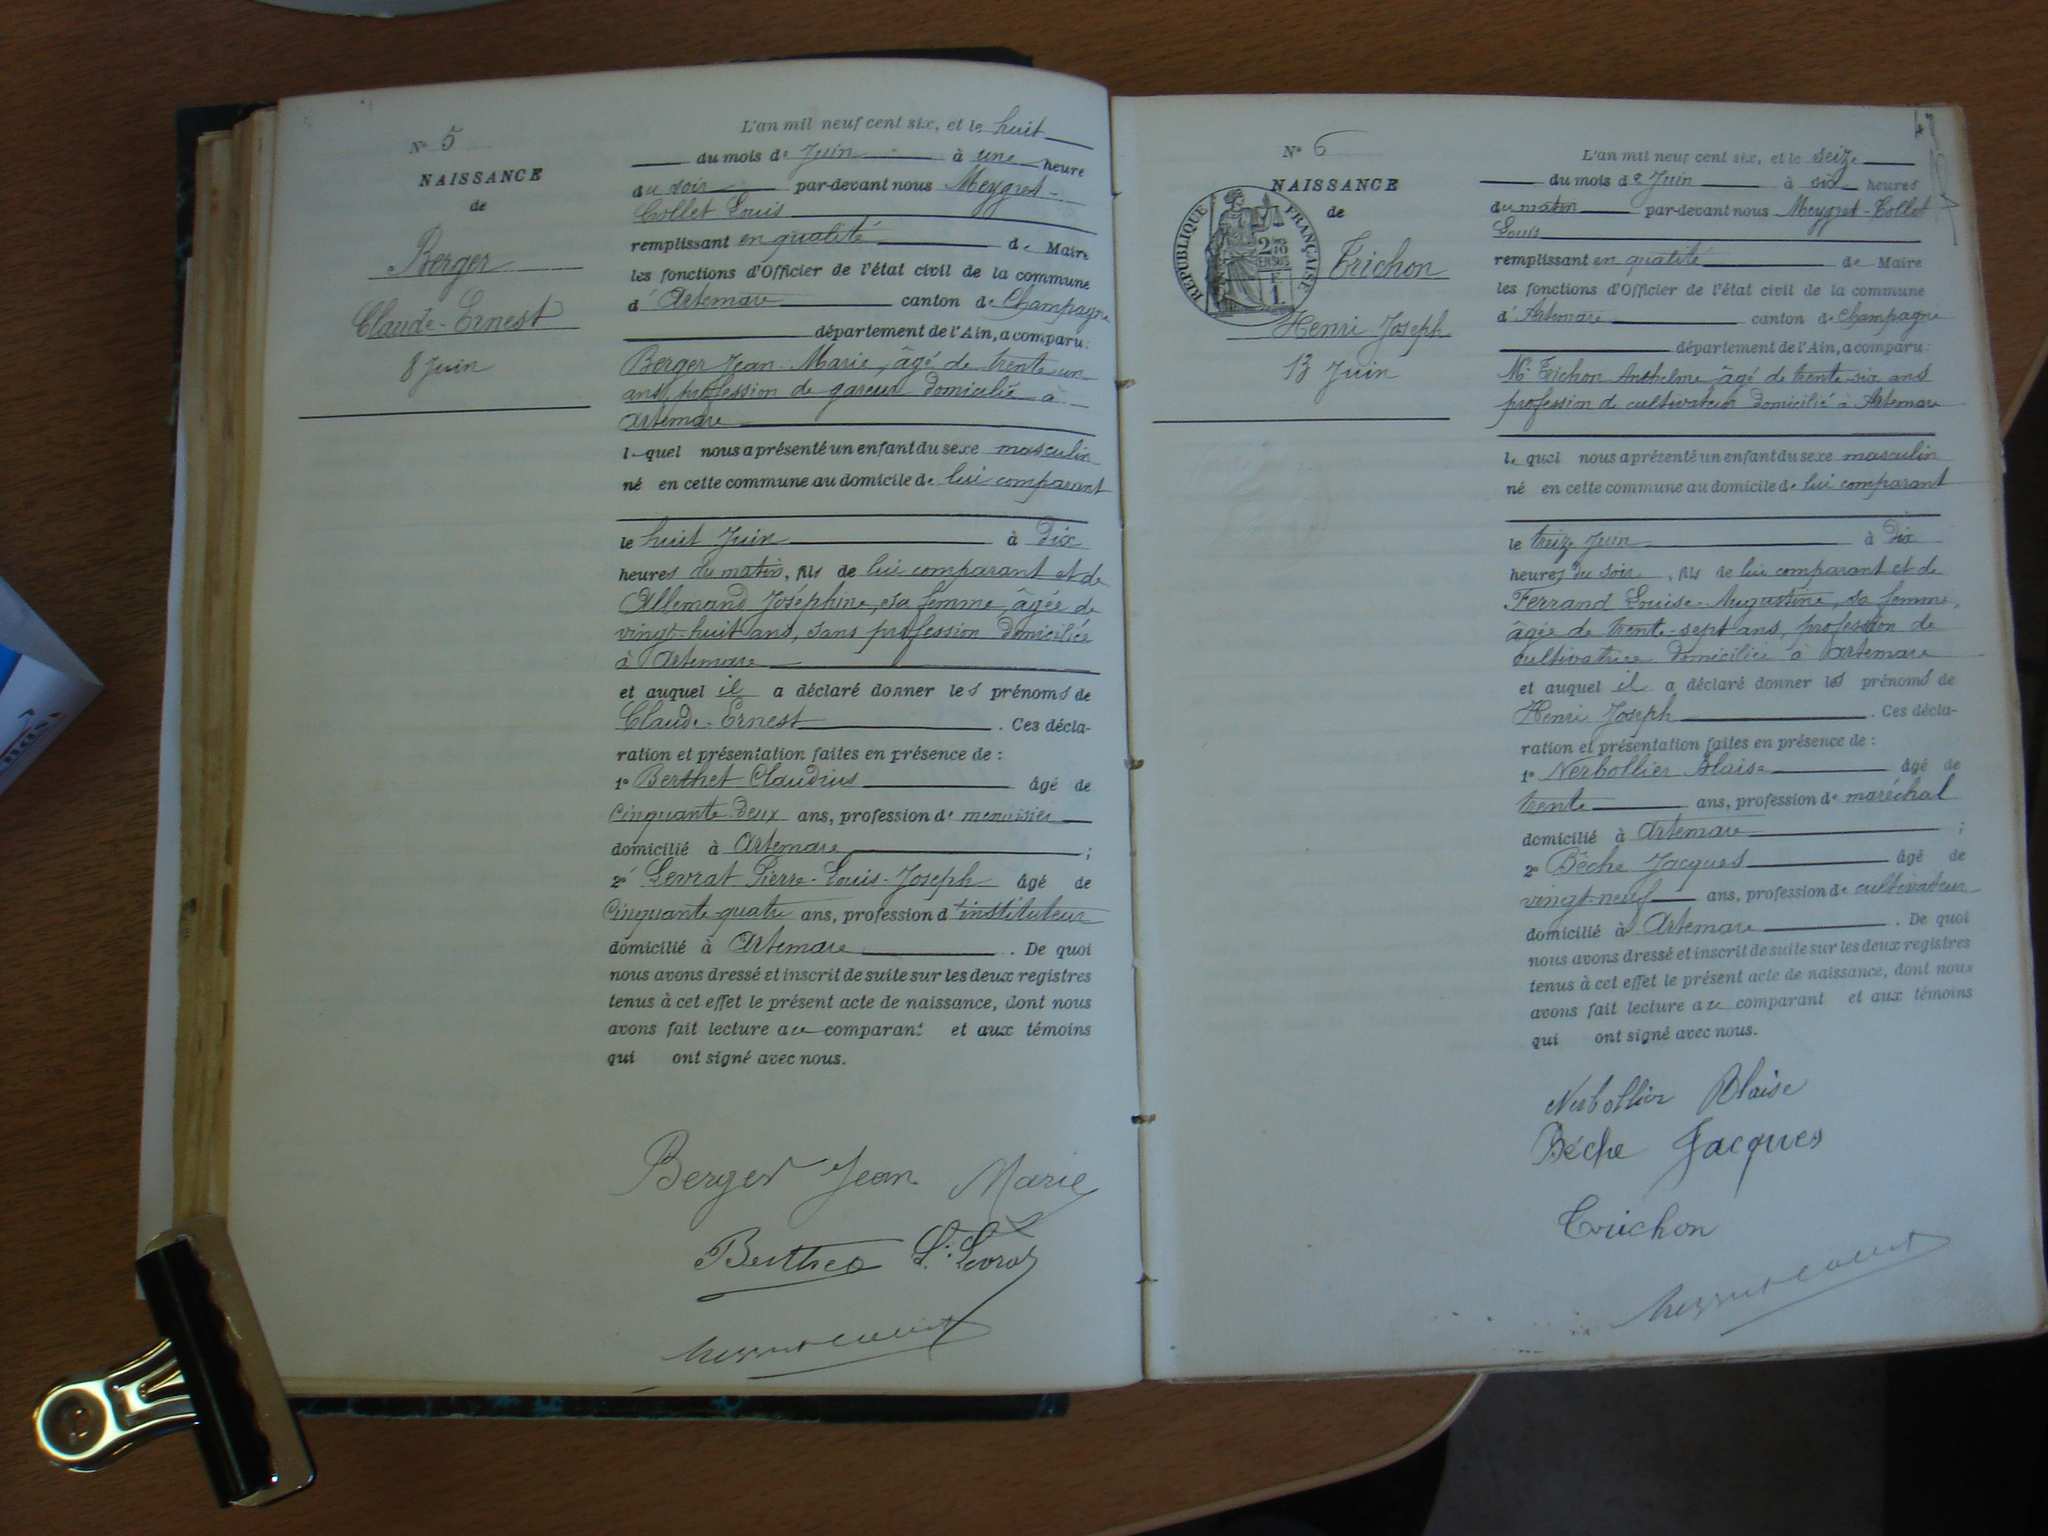 N° 5
NAISSANCE
de
Berger
Claude-Ernest
8 Juin
L'an mil neuf cent six, et le huit
du mois de Juin à une heure
du soir par-devant nous Meygret-
Collet Louis
remplissant en qualité de Maire
les fonctions d'Officier de l'état civil de la commune
d'Artemare canton de Champagne
département de l'Ain, a comparu:
Berger Jean-Marie, âgé de trente-un
ans, profession de gareur domicilié à
Artemare
lequel nous a présenté un enfant du sexe masculin
né en cette commune au domicile de lui comparant
le huit Juin à Dix
heures du matin, fils de lui comparant et de
Allemand Joséphine, sa femme, âgée de
vingt-huit ans, sans profession domiciliée
à Artemare
et auquel il a déclaré donner les prénoms de
Claude-Ernest. Ces décla-
ration et présentation faites en présence de :
1° Berthet Claudius âgé de
Cinquante-Deux ans, profession de menuisier
domicilié à Artemare ;
2° Levrat Pierre-Louis-Joseph âgé de
Cinquante-quatre ans, profession d'instituteur
domicilié à Artemare. De quoi
nous avons dressé et inscrit de suite sur les deux registres
tenus à cet effet le présent acte de naissance, dont nous
avons fait lecture au comparant et aux témoins
qui ont signé avec nous.
Berger Jean Marie
Berthet L. Levrat
N° 6
NAISSANCE
de
RÉPUBLIQUE FRANÇAISE
Trichon
Henri Joseph
13 Juin
L'an mil neuf cent six, et le seize
du mois de Juin à six heures
du matin par-devant nous Meygret-Collet
Louis
remplissant en qualité de Maire
les fonctions d'Officier de l'état civil de la commune
d'Artemare canton de Champagne
département de l'Ain, a comparu:
Mr Trichon Anthelme âgé de trente-six ans
profession de cultivateur domicilié à Artemare
lequel nous a présenté un enfant du sexe masculin
né en cette commune au domicile de lui comparant
le treize Juin à Dix
heures du soir, fils de lui comparant et de
Ferrand Louise-Augustine, sa femme,
âgée de trente-sept ans, profession de
cultivatrice domiciliée à Artemare
et auquel il a déclaré donner les prénoms de
Henri Joseph. Ces décla-
ration et présentation faites en présence de :
1° Nerbollier Blaise âgé de
trente ans, profession de maréchal
domicilié à Artemare ;
2° Bêche Jacques âgé de
vingt-neuf ans, profession de cultivateur
domicilié à Artemare. De quoi
nous avons dressé et inscrit de suite sur les deux registres
tenus à cet effet le présent acte de naissance, dont nous
avons fait lecture au comparant et aux témoins
qui ont signé avec nous.
Nerbollier Blaise
Béche Jacques
Trichon